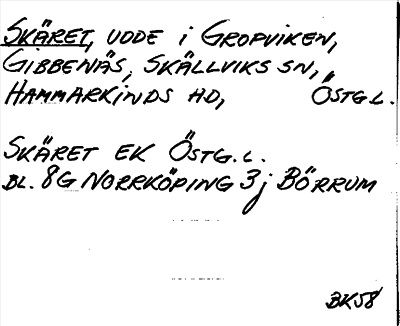 SKÄRET, UDDE i GROPVIKEN,
GIBBENÄS, SKÄLLVIKS SN,
HAMMARKINDS HD, ÖSTG.L.
SKÄRET EK ÖSTG.L.
BL. 8G NORRKÖPING 3j BÖRRUM
BK58